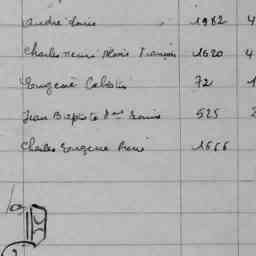 André Louis 1982 4
Charles Henri Alexis François 1620 4
Eugène Célestin 72 1
Jean Baptiste Louis 525 2
Charles Eugène René 1666